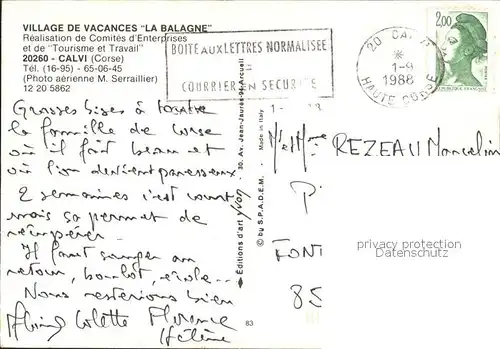 VILLAGE DE VACANCES "LA BALAGNE"
Réalisation de Comités d'Entreprises
et de "Tourisme et Travail"
20260 - CALVI (Corse)
Tél. (16-95) - 65-06-45
(Photo aérienne M. Serraillier)
12 20 5862
BOITE AUX LETTRES NORMALISEE
COURRIER EN SECURITE
20 CALVI
1-9
1988
HAUTE CORSE
2,00
Grosses bises à toute
la famille de Corse
où il fait beau et
où l'on devient paresseux
2 semaines c'est court
mais ça permet de
récupérer.
Il faut songer au
retour, boulot, école...
Nous resterions bien
Colette Florence
Hélène
Editions d'art yvon - 30, Av. Jean-Jaurès-94 Arcueil
© by S.P.A.D.E.M. - Made in Italy
83
REZEAU Marcelin
FONT
85
privacy protection
Datenschutz